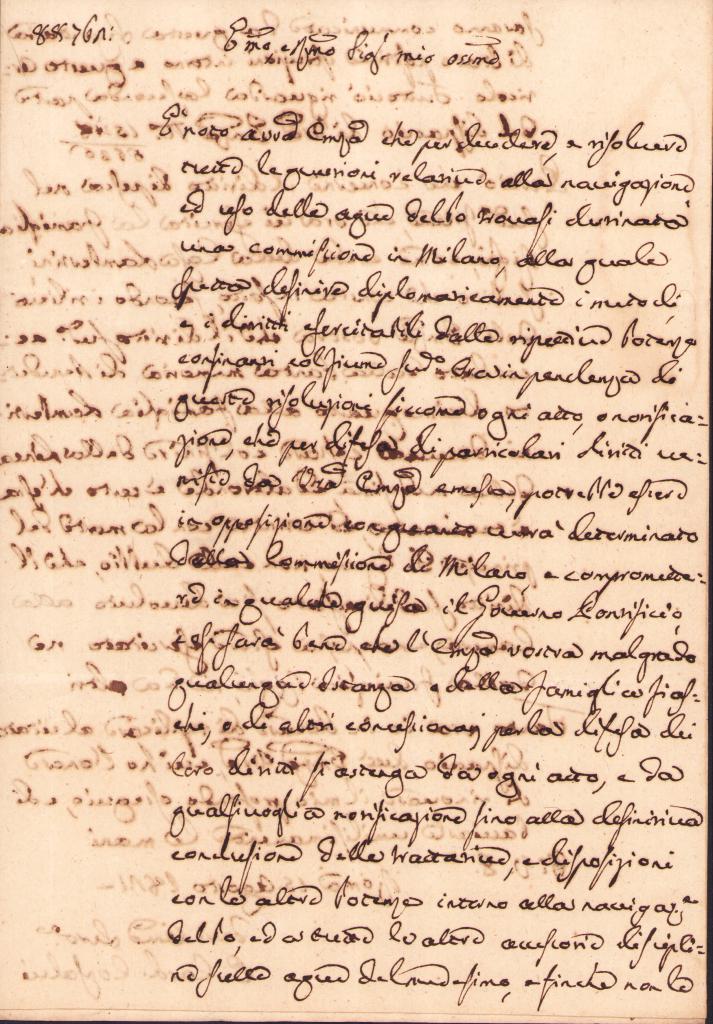 Emo e Rmo Sigr mio ossmo
E' noto a vra Emza che per decidere, e risolvere
tutte le questioni relative alla navigazione
ed uso delle acque del Po trovasi destinata
una commissione in Milano, alla quale
spetta definire diplomaticamente i metodi,
e i diritti esercitabili dalle rispettive Potenze
confinanti col fiume sudo. In pendenza di
queste risoluzioni siccome ogni atto, o notifica=
zione, che per difesa di particolari diritti ve=
nisse da Vra Emza emessa, potrebbe essere
in opposizione con quanto verrà determinato
dalla Commissione di Milano, e compromette=
re in qualche guisa il Governo Pontificio,
così sarà bene che l'Emza vostra malgrado
qualunque istanza e della famiglia Fias=
chi, o di altri concessionarj per la difesa dei
loro diritti si astenga da ogni atto, e da
qualsivoglia notificazione sino alla definitiva
conclusione delle trattative, e disposizioni
con le altre Potenze intorno alla navigazne
del Po, ed a tutte le altre accessorie discipli=
ne sulle acque del medesimo, e finché non le